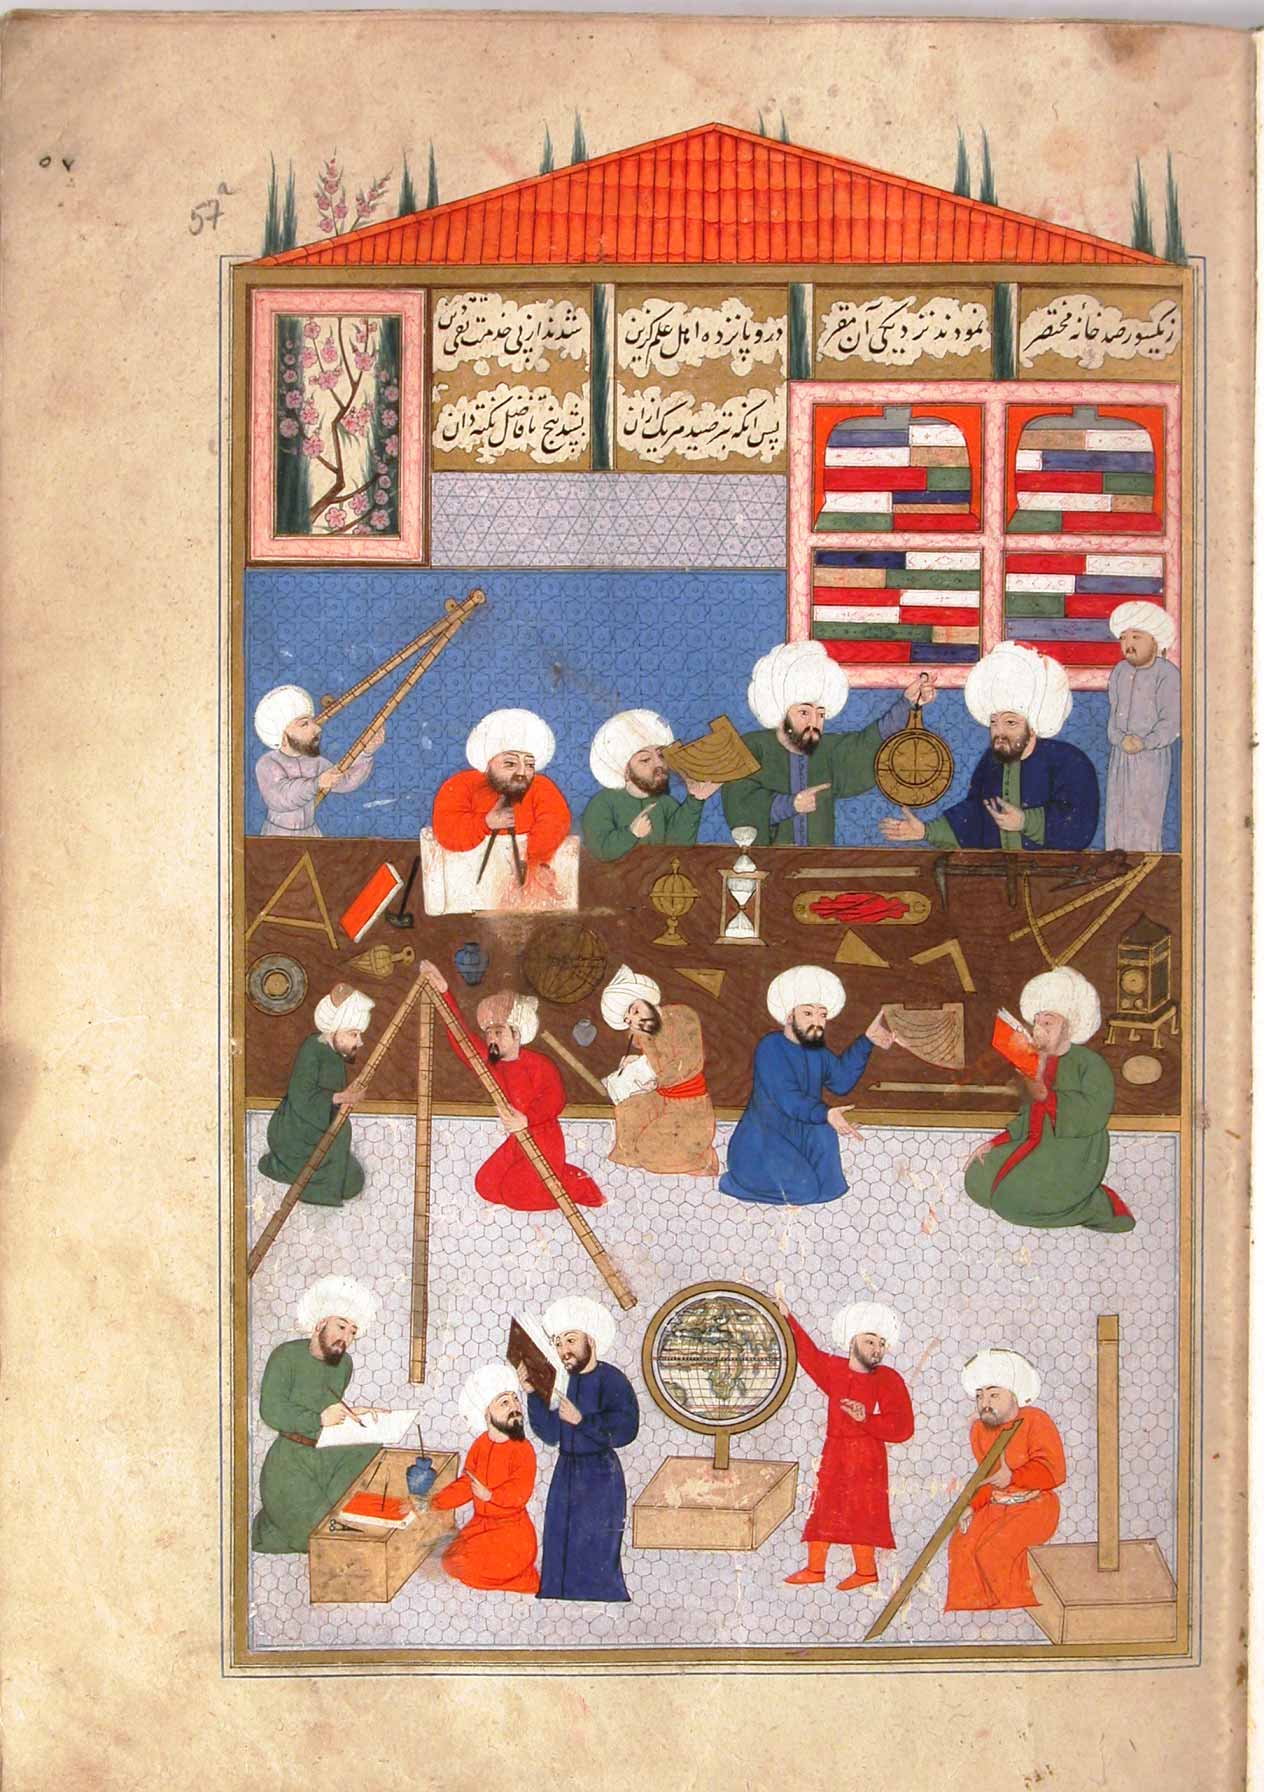 ٥٧
57a
زیکسو رصد خانهٔ مختصر
نمودند نزدیکی آن مقر
درو پانزده اهل علم گزین
شدند از پی خدمت تقی دین
پس انکه بترصید هر یک ازان
پنج تا فاضل نکته دان